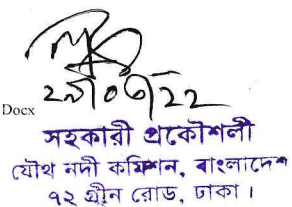 ২৯/০৬/২২
Docx
সহকারী প্রকৌশলী
যৌথ নদী কমিশন, বাংলাদেশ
৭২ গ্রীন রোড, ঢাকা ।